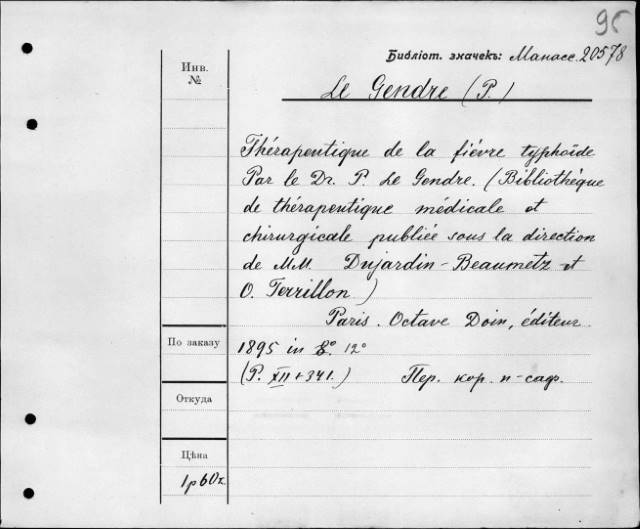 95
Библіот. значекъ: Манасс. 20578
Инв.
№
Le Gendre (P.)
Thérapeutique de la fiévre typhoïde
Par le Dr. P. Le Gendre. (Bibliothéque
de thérapeutique médicale et
chirurgicale publiée sous la direction
de MM. Dujardin-Beaumetz et
O. Terrillon)
Paris. Octave Doin, éditeur
По заказу
1895 in 8° 12°
(P. XII + 341.) Пер. кор. п-саф.
Откуда
Цѣна
1р 60к